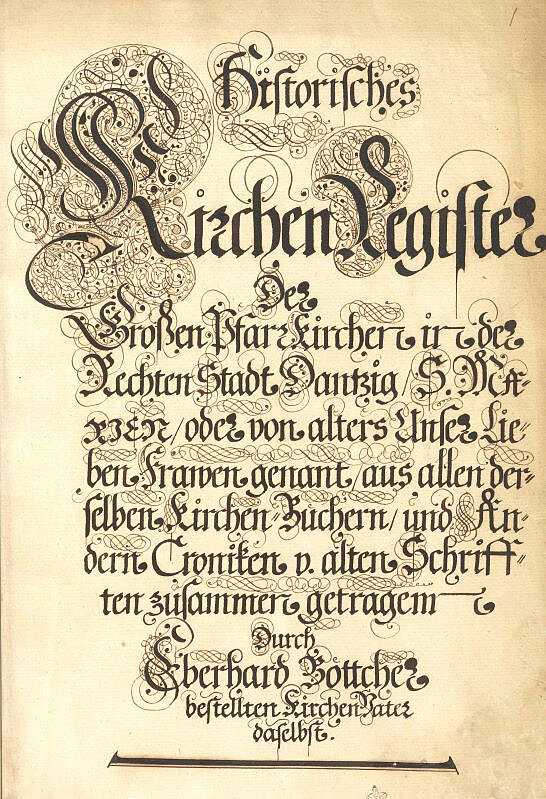 1
Historisches
Kirchen Register
Der
Großen Pfarr Kirchen in der
Rechten Stadt Dantzig / S. MA-
RIEN / oder von alters Unser Lie-
ben Frawen genant / aus allen der-
selben Kirchen-Büchern / und An-
dern Croniken v. alten Schriff-
ten zusammen getragem
Durch
Eberhard Böttcher
bestellten Kirchen Vater
daselbst.